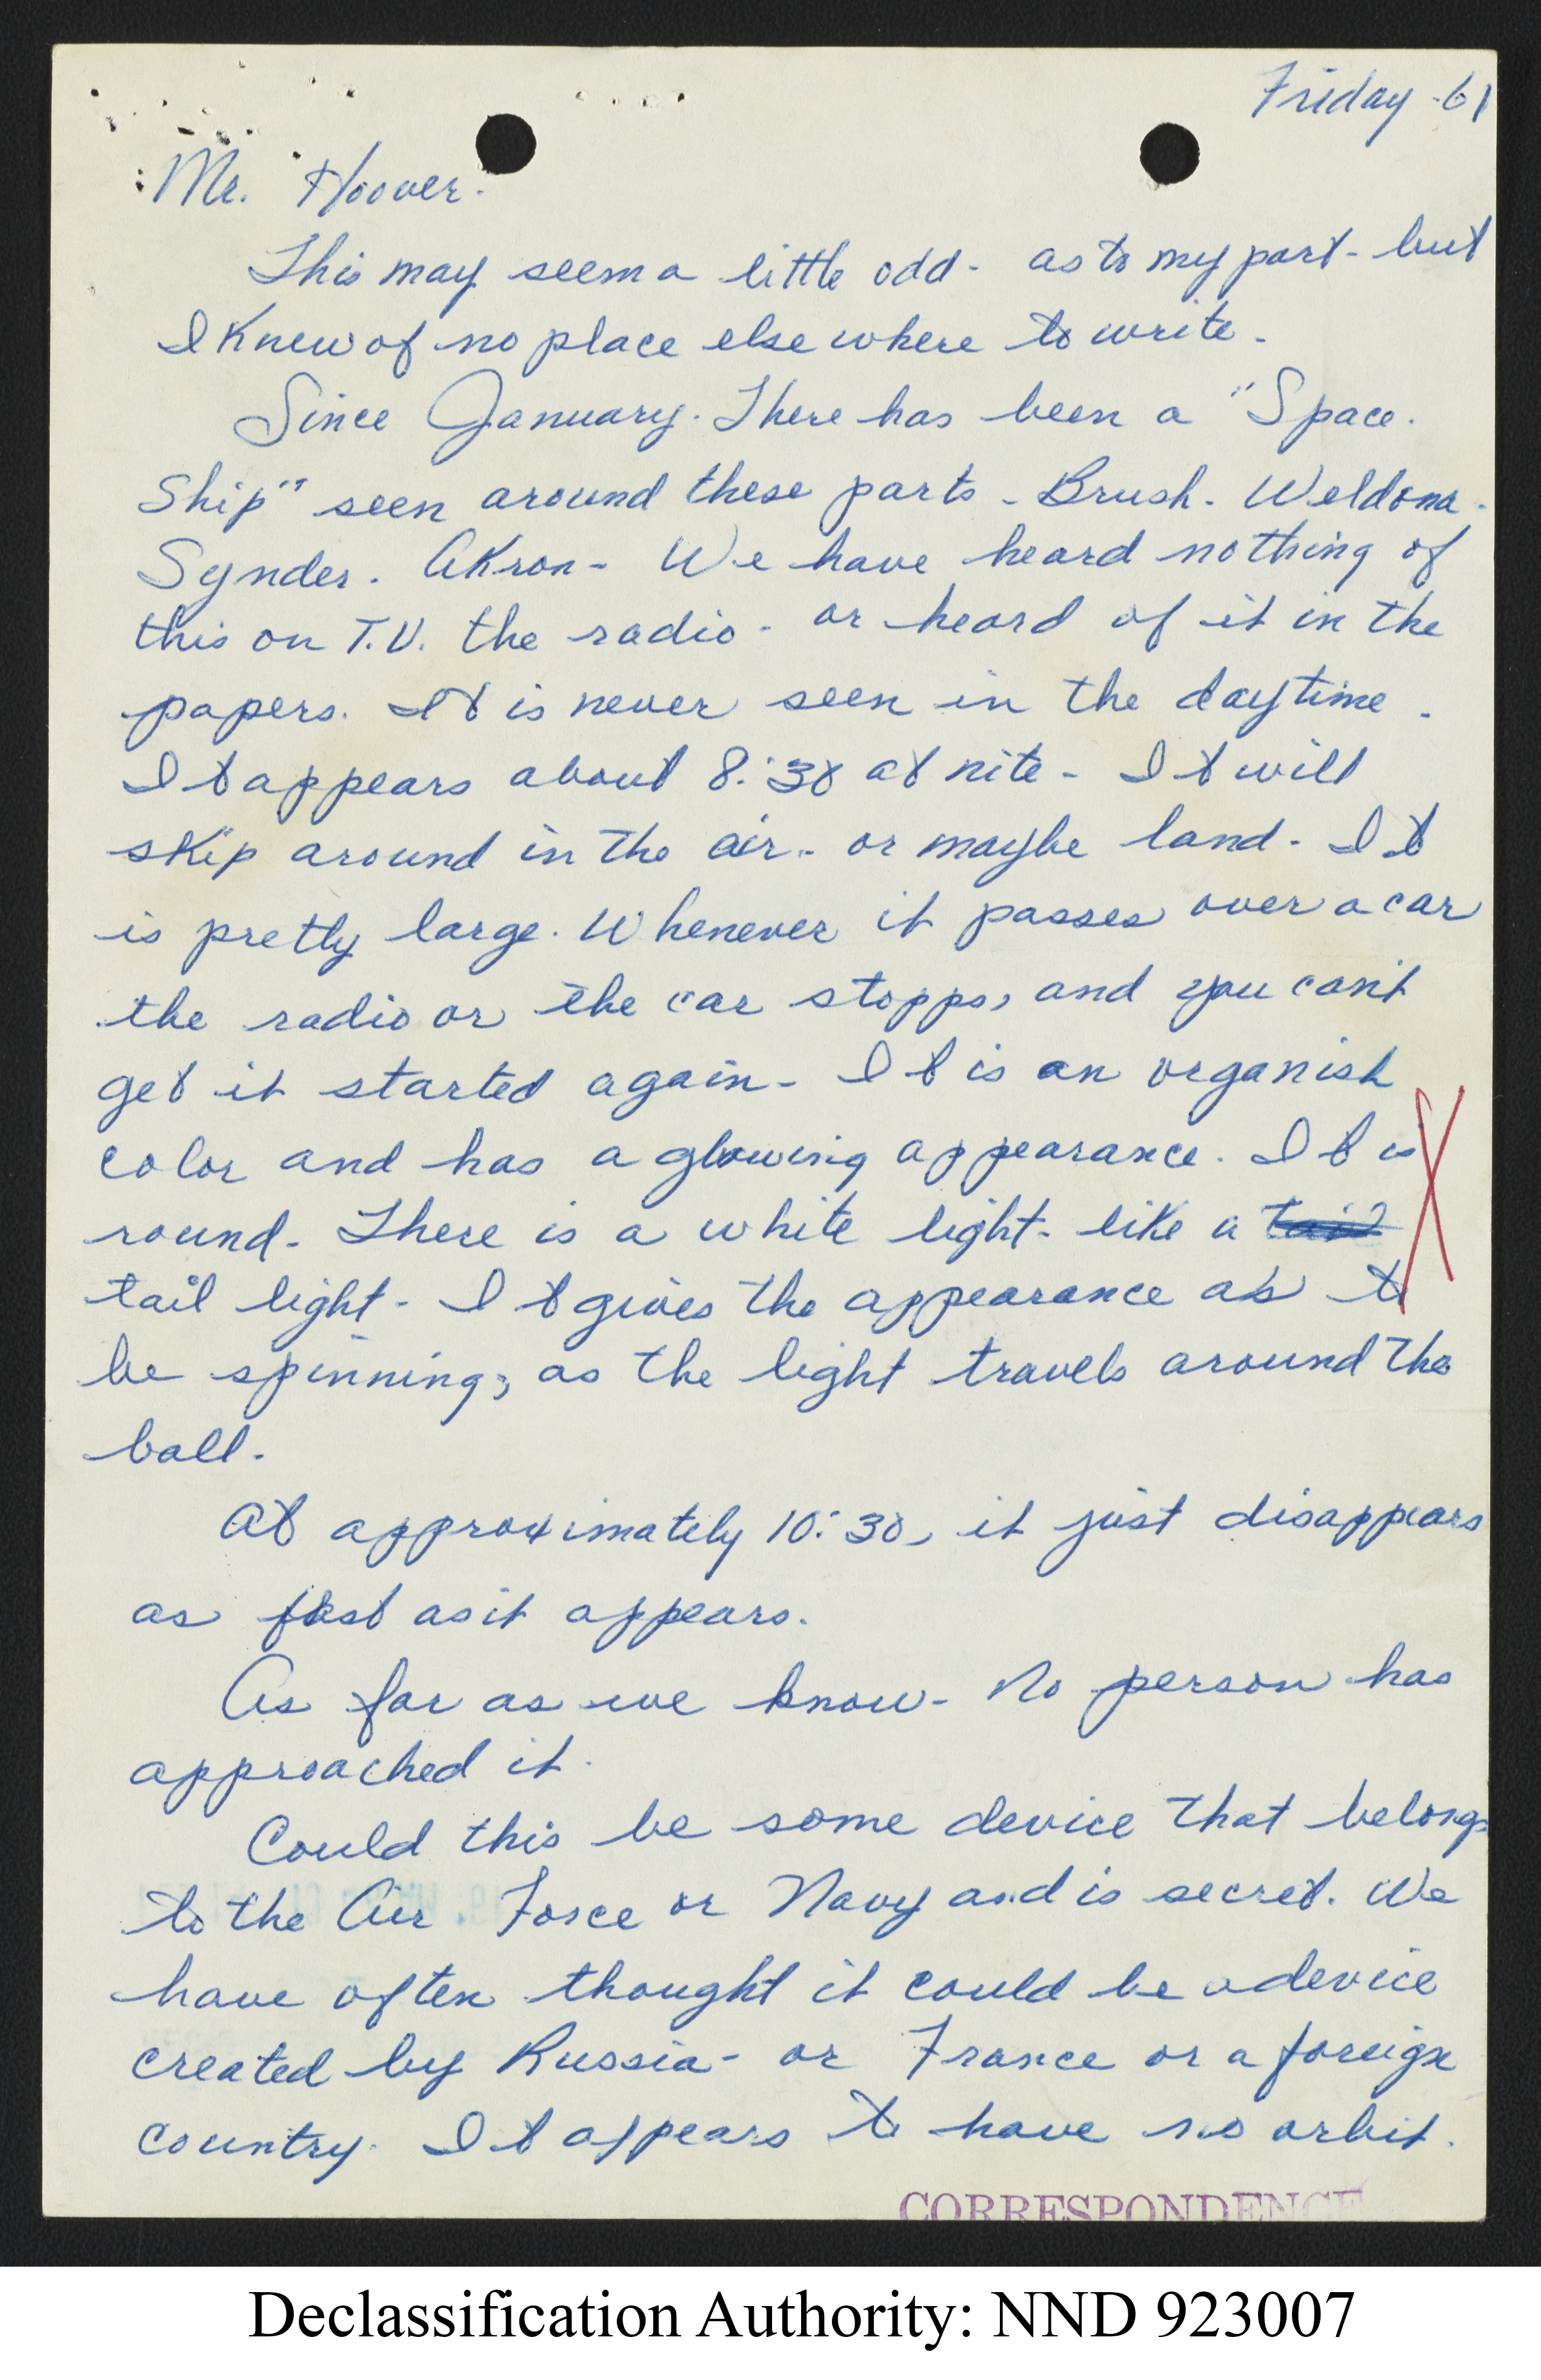 Friday -61
Mr. Hoover.
This may seem a little odd - as to my part - but
I Knew of no place else where to write.
Since January. There has been a "Space.
Ship" seen around these parts - Brush. Weldona.
Synder. Akron - We have heard nothing of
this on T.V. the radio - or heard of it in the
papers. It is never seen in the daytime.
It appears about 8:30 at nite - It will
skip around in the air - or maybe land - It
is pretty large. Whenever it passes over a car
the radio or the car stopps, and you can't
get it started again - It is an organish
color and has a glowing appearance. It is
round - There is a white light - like a tail
tail light - It gives the appearance as to
be spinning, as the light travels around the
ball.
At approximately 10:30, it just disappears
as fast as it appears.
As far as we know - No person has
approached it.
Could this be some device that belongs
to the Air Force or Navy and is secret. We
have often thought it could be a device
created by Russia - or France or a foreign
country. It appears to have no orbit.
CORRESPONDENCE
Declassification Authority: NND 923007